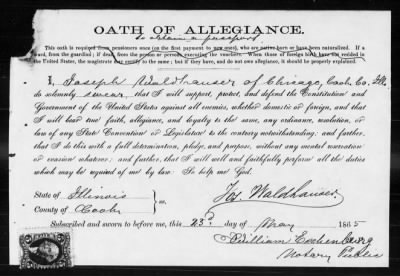 OATH OF ALLEGIANCE.
to obtain a passport
This oath is required from pensioners once (on the first payment to new ones), who are native born or have been naturalized. If a
ward, from the guardian; if dead, from the person or persons executing the vouchers. When those of foreign birth have not resided in
the United States, the magistrate may certify to the same; but if they have, and do not own allegiance, it should be properly explained.
I, Joseph Waldhauser of Chicago, Cook Co. Ills.
do solemnly swear, that I will support, protect, and defend the Constitution and
Government of the United States against all enemies, whether domestic or foreign, and that
I will bear true faith, allegiance, and loyalty to the same, any ordinance, resolution, or
law of any State Convention or Legislature to the contrary notwithstanding; and further,
that I do this with a full determination, pledge, and purpose, without any mental reservation
or evasion whatsoever; and further, that I will well and faithfully perform all the duties
which may be required of me by law. So help me God.
State of Illinois
County of Cook
Jos. Waldhauser.
Subscribed and sworn to before me, this 23d day of May 1865
William
Notary Public